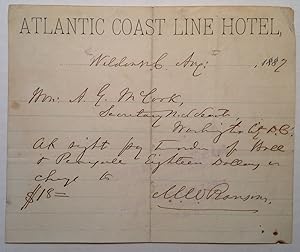 ATLANTIC COAST LINE HOTEL,
Weldon N.C. Aug: , 1887
Hon. A. G. McCook,
Secretary U.S. Senate
Washington City D.C.
At sight pay to order of Wall
& Eighteen Dollars &
charge to
$18= M W Ransom